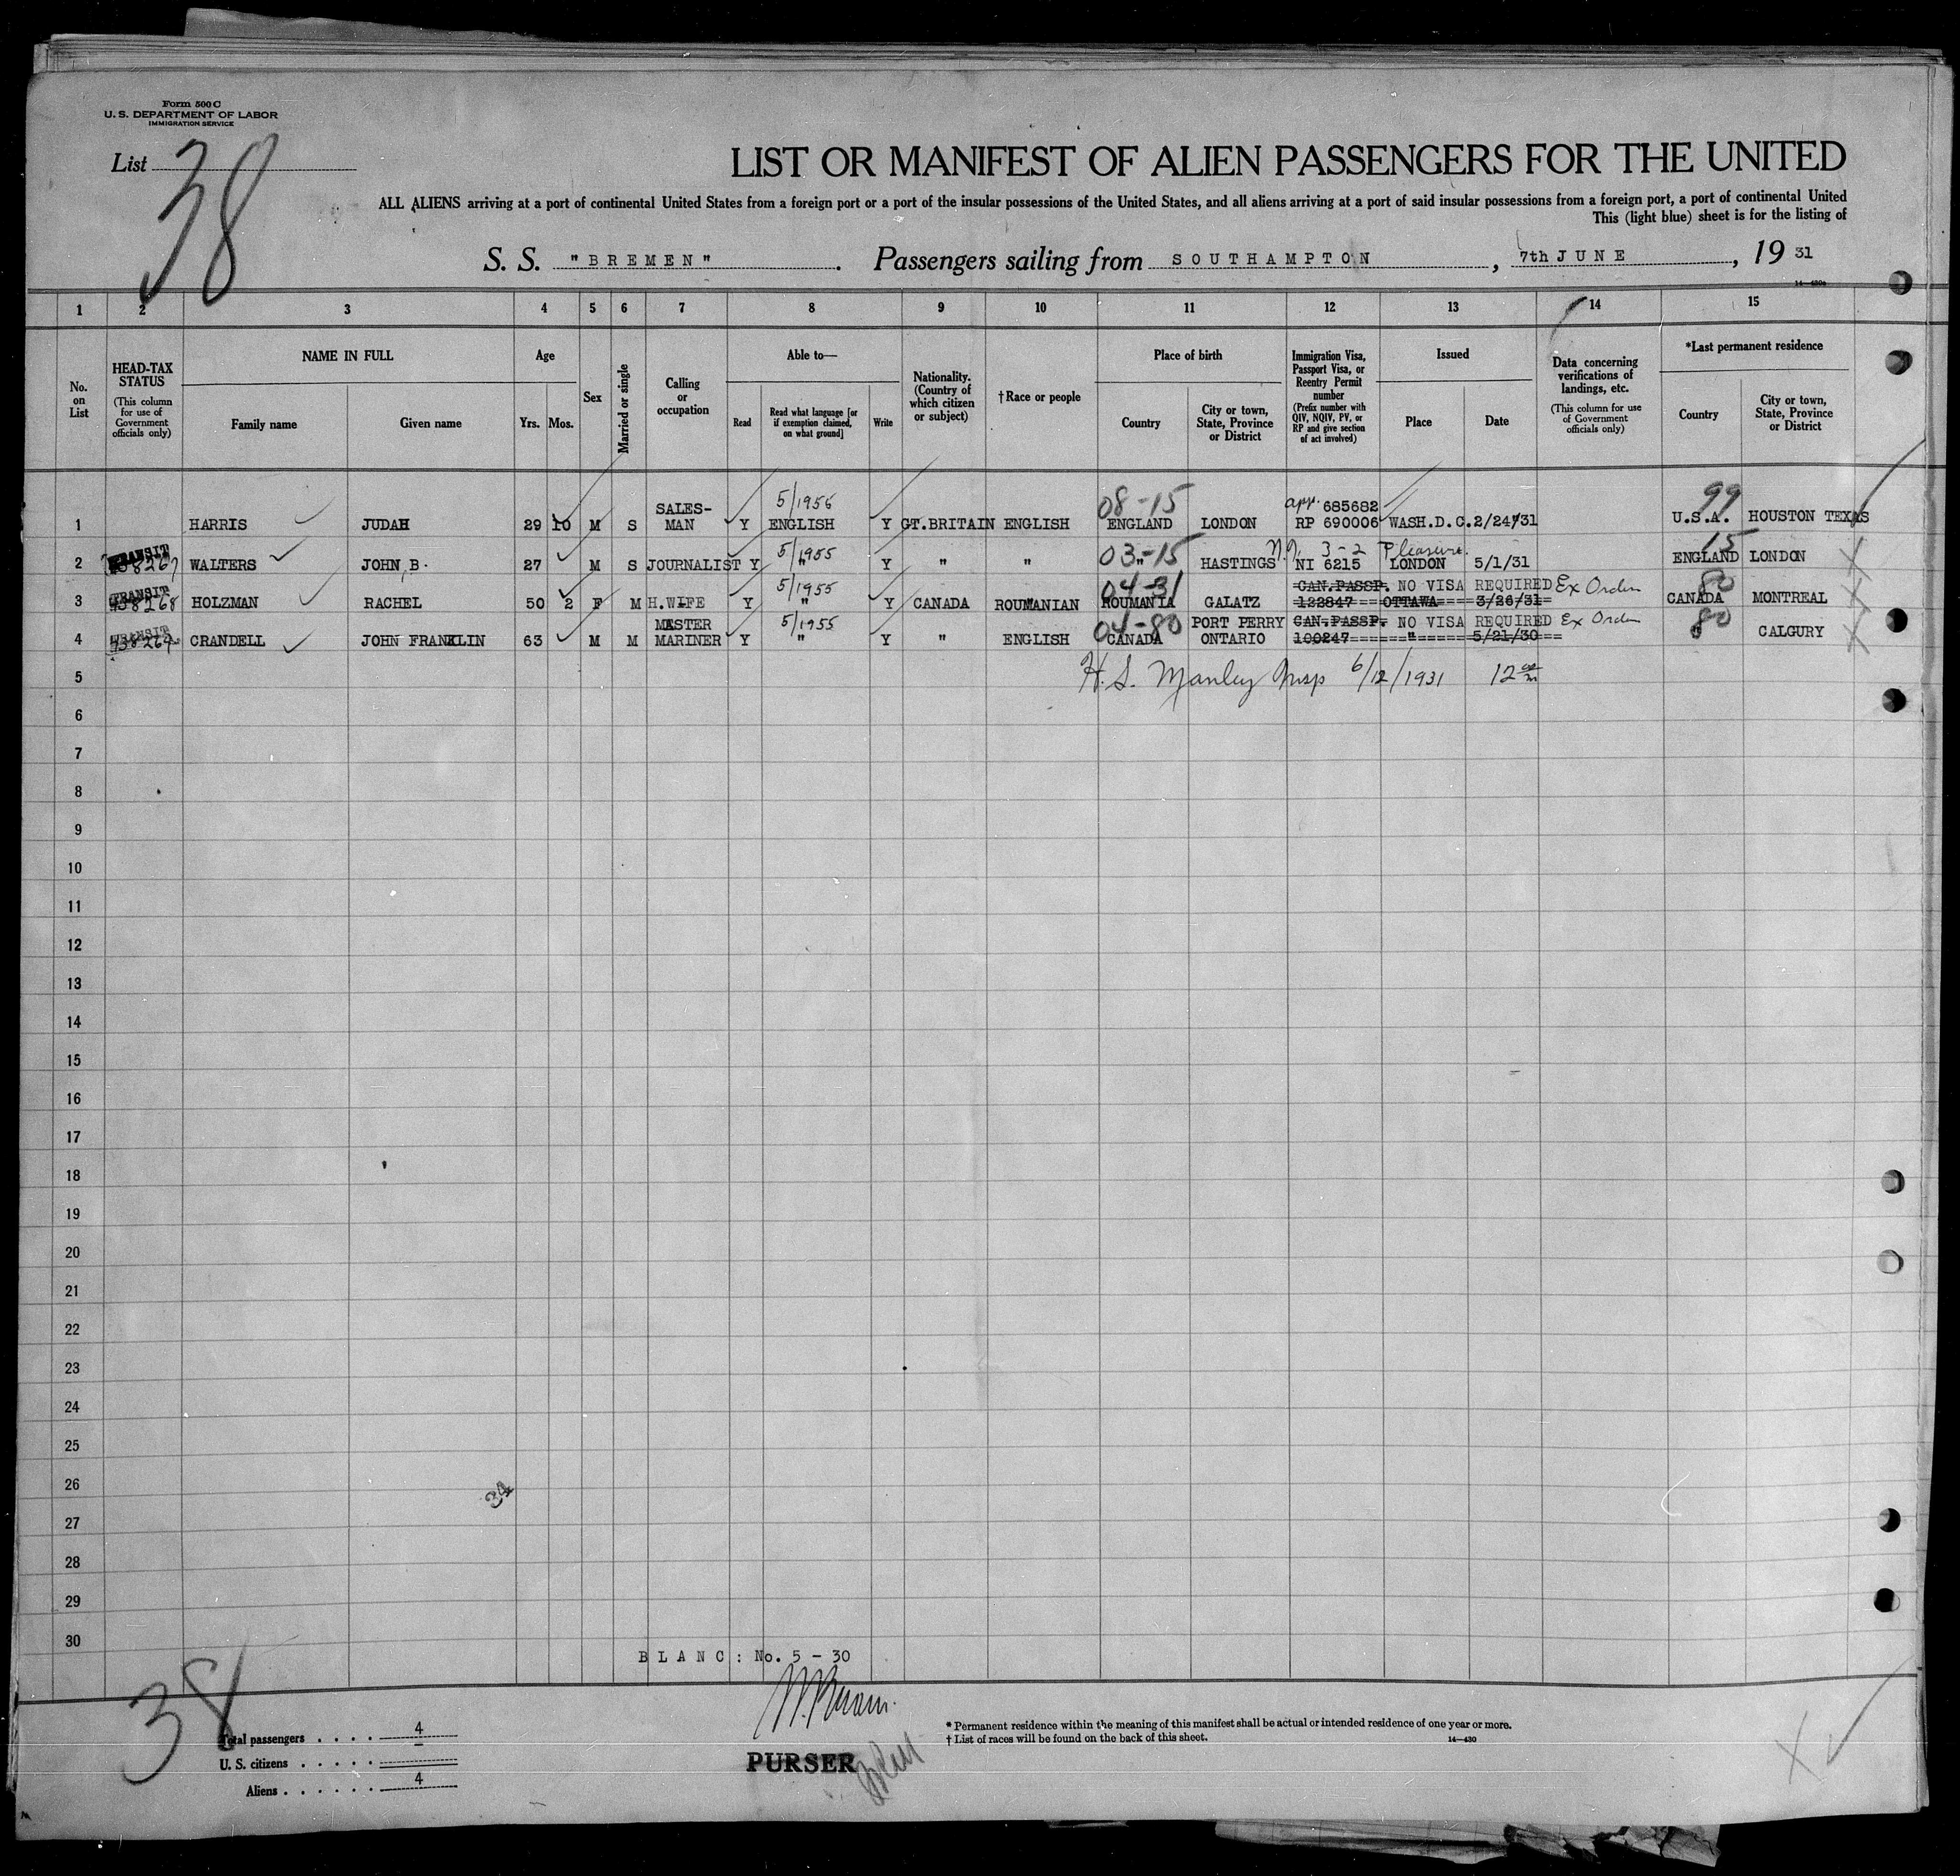 Form 500 C
U. S. DEPARTMENT OF LABOR
IMMIGRATION SERVICE
List 38
LIST OR MANIFEST OF ALIEN PASSENGERS FOR THE UNITED
ALL ALIENS arriving at a port of continental United States from a foreign port or a port of the insular possessions of the United States, and all aliens arriving at a port of said insular possessions from a foreign port, a port of continental United
This (light blue) sheet is for the listing of
S. S. "BREMEN" . Passengers sailing from SOUTHAMPTON , 7th JUNE , 19 31
14—430a
1 2 3 4 5 6 7 8 9 10 11 12 13 14 15
No. on List
HEAD-TAX STATUS (This column for use of Government officials only)
NAME IN FULL
Family name
Given name
Age
Yrs.
Mos.
Sex
Married or single
Calling or occupation
Able to—
Read
Read what language [or if exemption claimed, on what ground]
Write
Nationality. (Country of which citizen or subject)
†Race or people
Place of birth
Country
City or town, State, Province or District
Immigration Visa, Passport Visa, or Reentry Permit number (Prefix number with QIV, NQIV, PV, or RP and give section of act involved)
Issued
Place
Date
Data concerning verifications of landings, etc. (This column for use of Government officials only)
*Last permanent residence
Country
City or town, State, Province or District
SALES- 5/1956 08-15 app. 685682 99
1 HARRIS JUDAH 29 10 M S MAN Y ENGLISH Y GT.BRITAIN ENGLISH ENGLAND LONDON RP 690006 WASH.D.C. 2/24/31 U.S.A. HOUSTON TEXAS
TRANSIT 5/1955 03-15 3-2 Pleasure. 15
2 738267 WALTERS JOHN B. 27 M S JOURNALIST Y " Y " " " HASTINGS NI 6215 LONDON 5/1/31 ENGLAND LONDON
TRANSIT 5/1955 04-31 CAN.PASSP. NO VISA REQUIRED Ex Order 80
3 738268 HOLZMAN RACHEL 50 2 F M H.WIFE Y " Y CANADA ROUMANIAN ROUMANIA GALATZ 122847 OTTAWA 3/26/31 CANADA MONTREAL
TRANSIT MASTER 5/1955 04-80 PORT PERRY CAN.PASSP. NO VISA REQUIRED Ex Order 80
4 738269 CRANDELL JOHN FRANKLIN 63 M M MARINER Y " Y " ENGLISH CANADA ONTARIO 100247 " 5/21/30 " CALGURY
5 H. S. Manley Insp 6/12/1931 12
6
7
8
9
10
11
12
13
14
15
16
17
18
19
20
21
22
23
24
25
26
34
27
28
29
30
BLANC: No. 5 - 30
38
Total passengers . . . . 4
U. S. citizens . . . . . —
Aliens . . . . . . 4
PURSER
* Permanent residence within the meaning of this manifest shall be actual or intended residence of one year or more.
† List of races will be found on the back of this sheet.
14—430